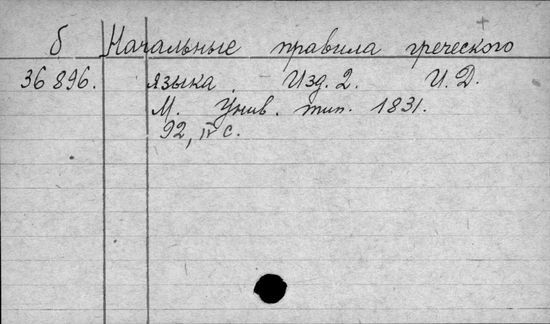 б Начальные правила греческого
36 896. языка. Изд. 2. И. Д.
М. Унив. тип. 1831.
92, IV с.